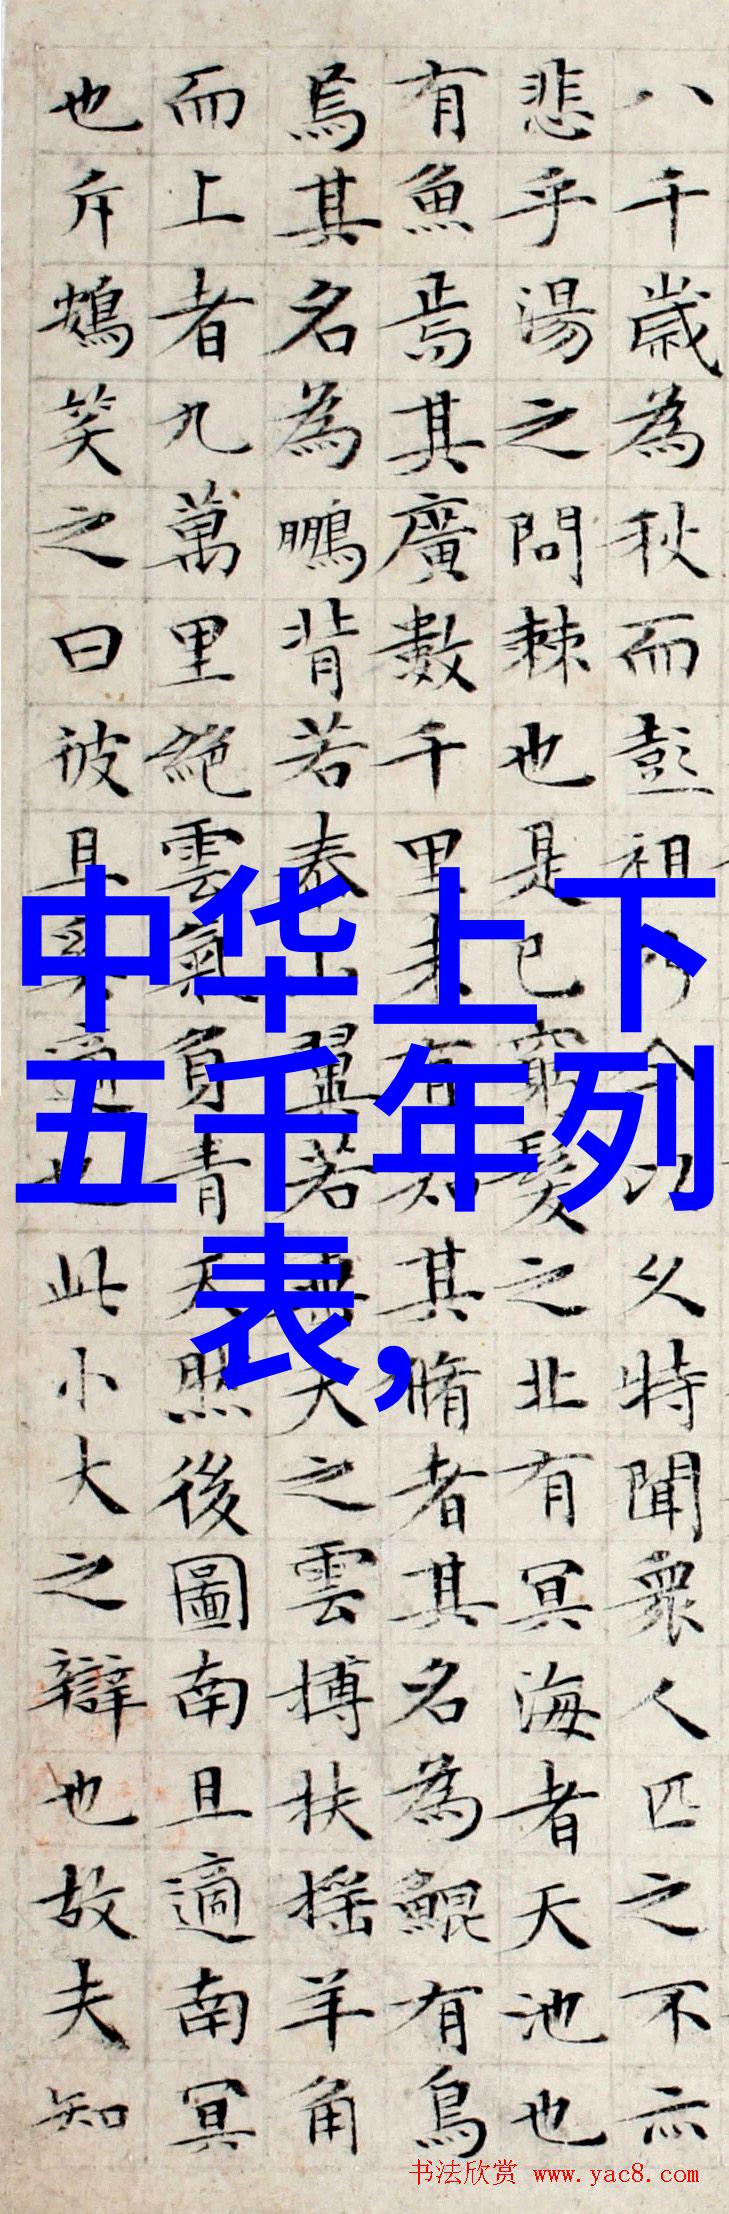 八千歲為秋而彭祖乃今以久特聞衆人匹之不亦
悲乎湯之問棘也是已窮髮之北有冥海者天池也
有魚焉其廣數千里未有知其脩者其名為鯤有鳥
焉其名為鵬背若泰山翼若垂天之雲搏扶摇羊角
而上者九萬里絕雲氣負青天然後圖南且適南冥
也斥鴳笑之曰彼且奚適也此小大之辯也故夫知
中华上下
五千年列
表,
书法欣赏 www.yac8.com